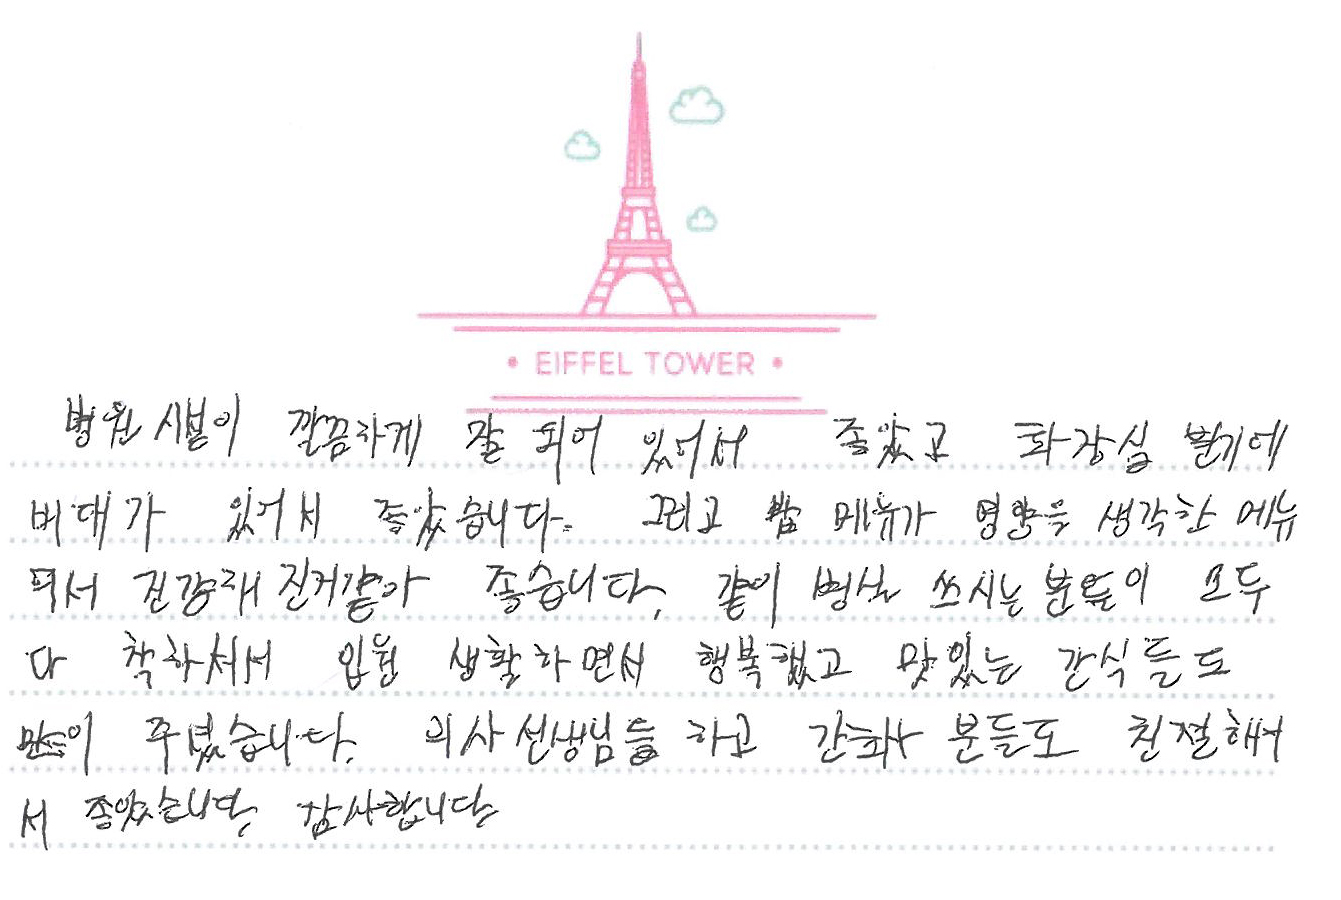 EIFFEL TOWER
병원 시설이 깔끔하게 잘 되어 있어서 좋았고 화장실 변기에
비데가 있어서 좋았습니다. 그리고 밥 메뉴가 영양을 생각한 메뉴
되서 진거같아 좋습니다. 같이 병실 쓰시는 분들이 모두
다 착하셔서 입원 생활하면서 행복했고 맛있는 간식들도
많이 주셨습니다. 의사선생님들 하고 간호사 분들도 친절해서
서 좋았습니다. 감사합니다